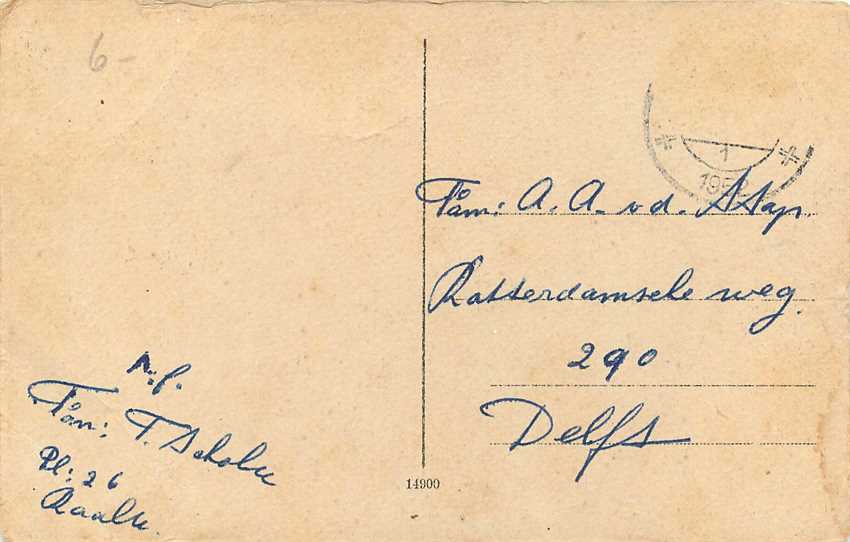 6-
1
195
Fam: A. A. v.d. Stap.
Rotterdamsche weg.
290
Delft
p.f.
Fam: T. Scholte
Pl: 26
Raalte.
14900